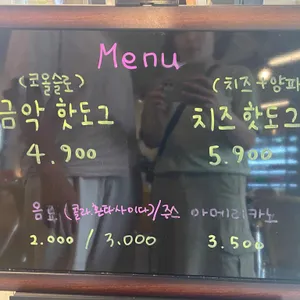 Menu
(코울슬로) (치즈+양파
금악 핫도그 치즈핫도그
4.900 5.900
음료 (콜라,환타,사이다)/쥬스 아메리카노
2.000 / 3.000 3.500